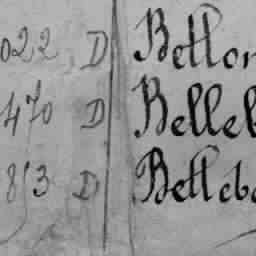 022 D Betton
470 D Belleb
853 D Betteba